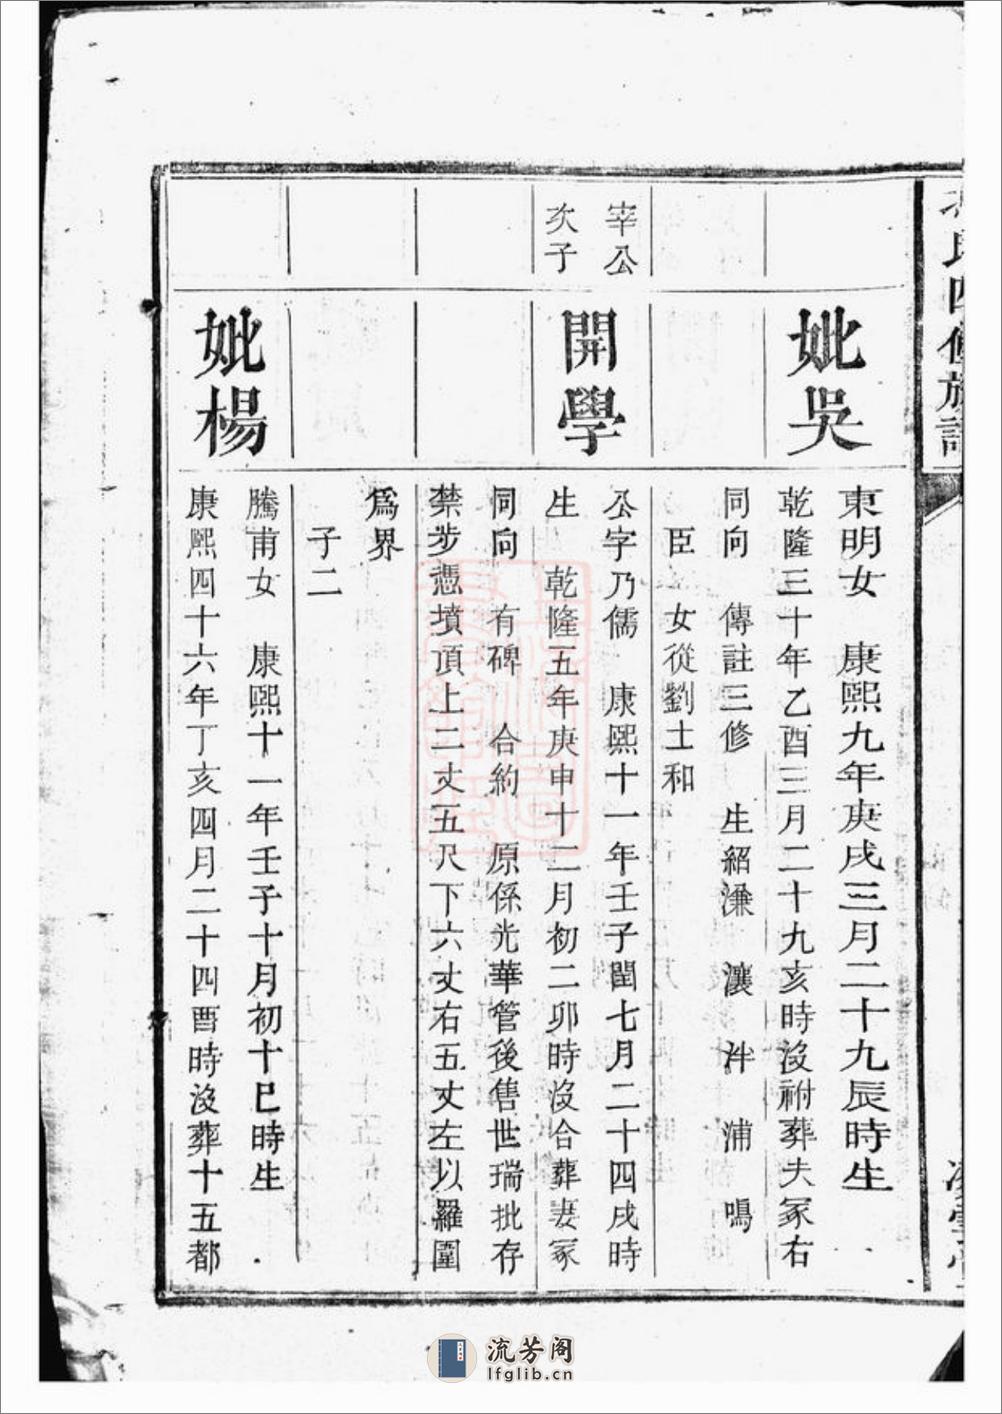 氏四修族譜
妣吳
東明女 康熙九年庚戌三月二十九辰時生
乾隆三十年乙酉三月二十九亥時沒祔葬夫冢右
同向 傳註三修 生紹濂 瀼 泮 浦 鳴
臣 女從劉士和
宰公
次子
開學
公字乃儒 康熙十一年壬子閏七月二十四戌時
生 乾隆五年庚申十二月初二卯時沒合葬妻冢
同向 有碑 合約 原係光華管後售世瑞批存
禁步憑墳頂上二丈五尺下六丈右五丈左以羅圍
爲界
子二
妣楊
騰甫女 康熙十一年壬子十月初十巳時生
康熙四十六年丁亥四月二十四酉時沒葬十五都
流芳阁
lfglib.cn